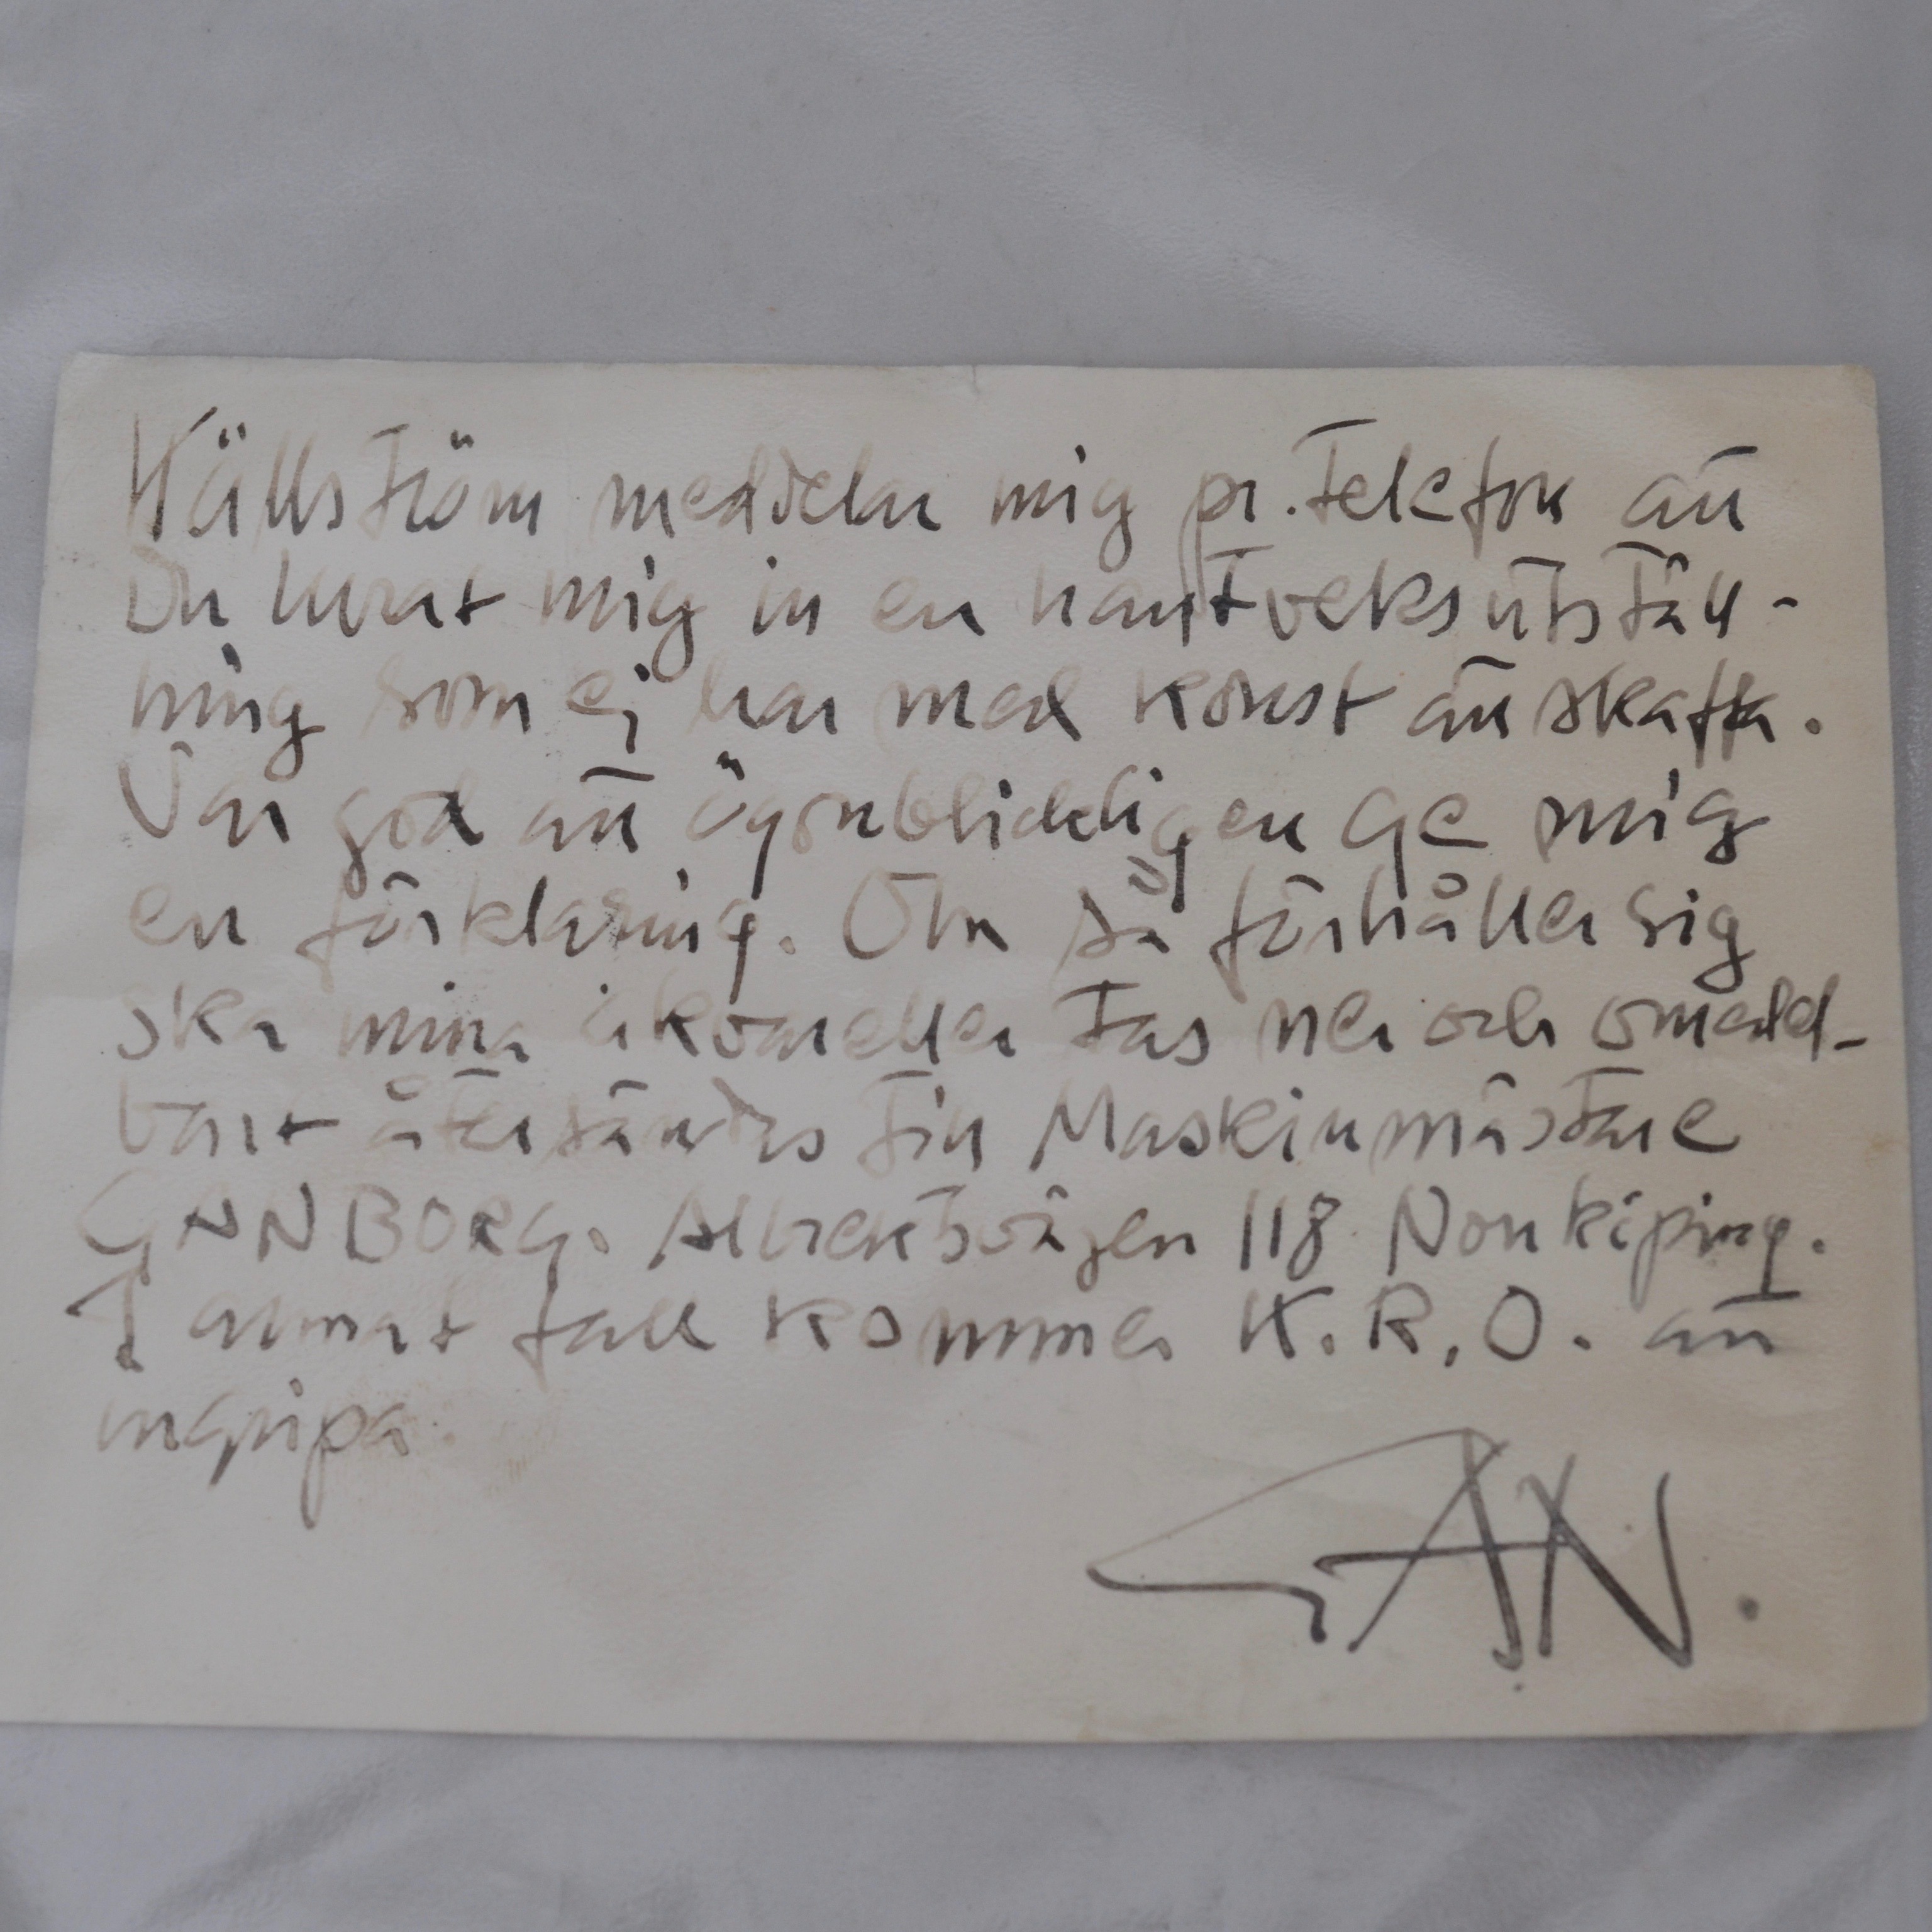 Källström meddelar mig pr. telefon att
Du lurat mig in en hantveksutställ-
ning som ej har med konst att skaffa.
Var god att ögonblickligen ge mig
en förklaring. Om så förhåller sig
ska mina akvareller tas ner och omedel-
bart återsändes till Maskinmästare
GANBORG. Albrektsvägen 118 Norrköping.
I annat fall kommer K.R.O. att
ingripa.
GAN.